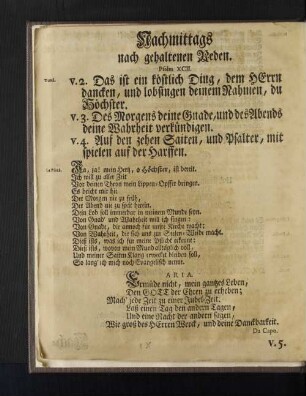 Nachmittags
nach gehaltenen Reden.
Psalm XCII.
v. 2. Das ist ein köstlich Ding, dem HErrn
dancken, und lobsingen deinem Nahmen, du
Höchster.
v. 3. Des Morgens deine Gnade, und des Abends
deine Wahrheit verkündigen.
v. 4. Auf den zehen Saiten, und Psalter, mit
spielen auf der Harffen.
Ja, ja! mein Hertz, o Höchster, ist bereit.
Ich will zu aller Zeit
Vor deinen Thron mein Lippen-Opffer bringen.
Es bricht mir hie
Der Morgen nie zu früh,
Der Abend nie zu spät herein.
Dein Lob soll immerdar in meinem Munde seyn.
Von Gnad' und Wahrheit will ich singen:
Von Gnade, die annoch für mein
Von Wahrheit, die sich uns zur Seelen-Weide macht.
Diß ists, was ich für meine Pflicht erkenne:
Diß ists, wovon mein Mund
Und meiner Saiten Klang erweckt bleiben soll,
So lang ich mich noch Evangelisch nenne.
ARIA.
Ermüde nicht, mein gantzes Leben,
Den GOTT der Ehren zu erheben;
Mach' jede Zeit zu einer Jubel-Zeit.
Laß einen Tag dem andern sagen,
Und eine Nacht der andern sagen,
Wie groß des HErren Werck, und deine Danckbarkeit.
Da Capo.
V. 5.